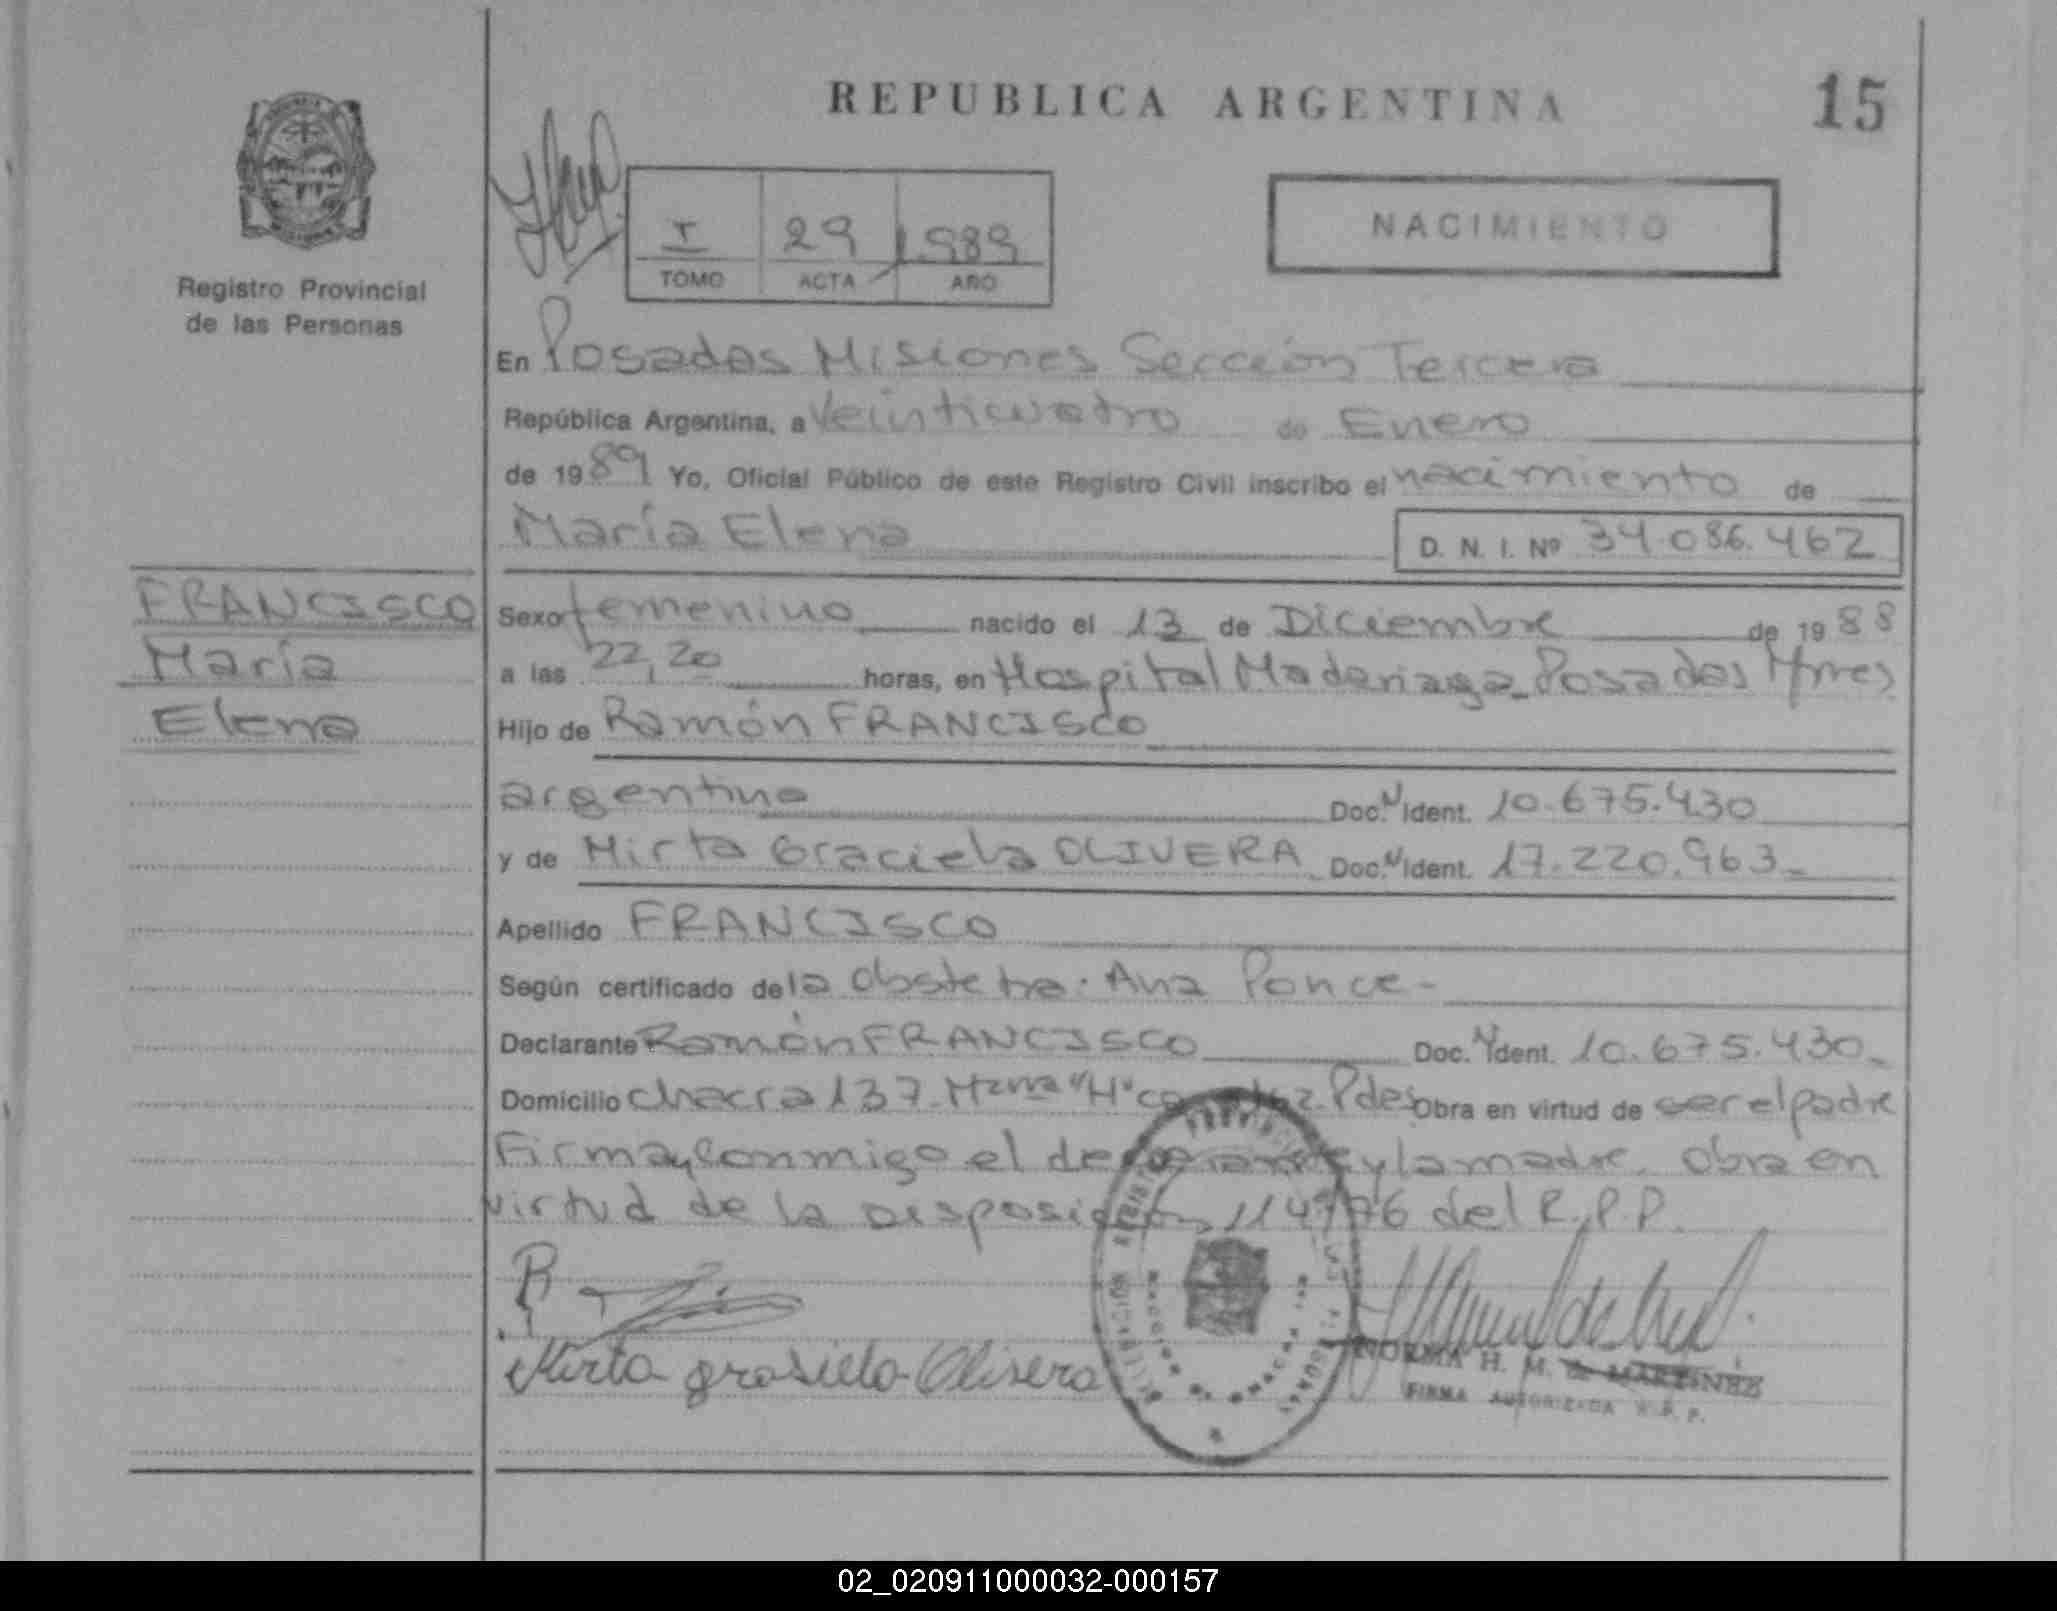 REPUBLICA ARGENTINA
15
I 29 1989
TOMO ACTA AÑO
NACIMIENTO
Registro Provincial
de las Personas
En Posadas Misiones Sección Tercera
República Argentina, a Veinticuatro de Enero
de 1989 Yo, Oficial Público de este Registro Civil inscribo el nacimiento de
María Elena D. N. I. Nº 34.086.462
FRANCISCO
María
Elena
Sexo femenino nacido el 13 de Diciembre de 1988
a las 22,20 horas, en Hospital Madariaga Posadas Mnes
Hijo de Ramón FRANCISCO
argentino Doc. N Ident. 10.675.430
y de Mirta Graciela OLIVERA Doc. N Ident. 17.220.963-
Apellido FRANCISCO
Según certificado de la Obstetra: Ana Ponce-
Declarante Ramón FRANCISCO Doc. N Ident. 10.675.430-
Domicilio chacra 137 Mzna "H" Pdas Obra en virtud de ser el padre
Firman conmigo el declarante y la madre. Obra en
virtud de la Disposición 114/76 del R.P.P.
Mirta grasiela Olivera
NORMA H. M. de MARTINEZ
FIRMA AUTORIZADA R.P.P.
02_020911000032-000157